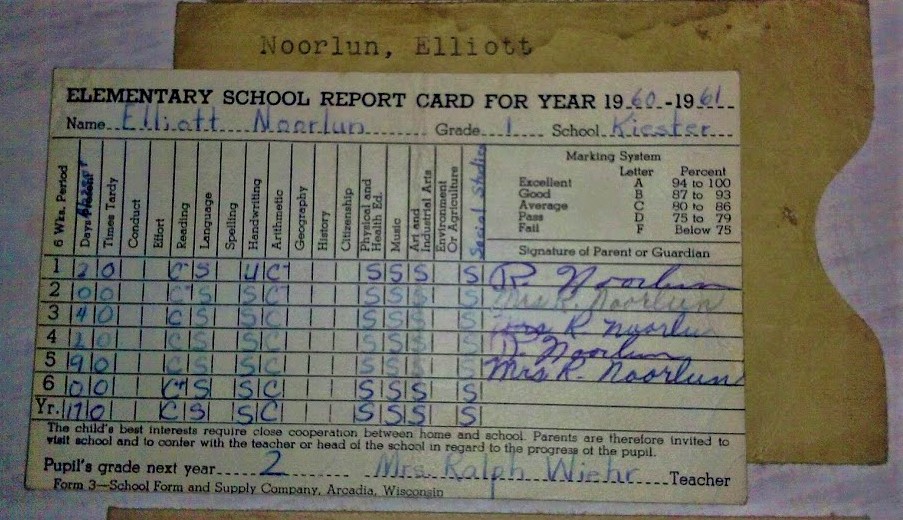 Noorlun, Elliott
ELEMENTARY SCHOOL REPORT CARD FOR YEAR 1960-1961
Name Elliott Noorlun Grade 1 School Kiester
6 Wks. Period
Days Absent
Times Tardy
Conduct
Effort
Reading
Language
Spelling
Handwriting
Arithmetic
Geography
History
Citizenship
Physical and Health Ed.
Music
Art and Industrial Arts
Environment Or Agriculture
Social Studies
Marking System
Letter Percent
Excellent A 94 to 100
Good B 87 to 93
Average C 80 to 86
Pass D 75 to 79
Fail F Below 75
Signature of Parent or Guardian
1 2 0 C- S U C- S S S S R. Noorlun
2 0 0 C- S S C- S S S S Mrs R. Noorlun
3 4 0 C S S C S S S S Mrs R Noorlun
4 2 0 C S S C S S S S R. Noorlun
5 9 0 C S S C S S S S Mrs R. Noorlun
6 0 0 C+ S S C S S S S
Yr. 17 0 C S S C S S S S
The child's best interests require close cooperation between home and school. Parents are therefore invited to
visit school and to confer with the teacher or head of the school in regard to the progress of the pupil.
Pupil's grade next year 2 Mrs. Ralph Wiehr Teacher
Form 3—School Form and Supply Company, Arcadia, Wisconsin